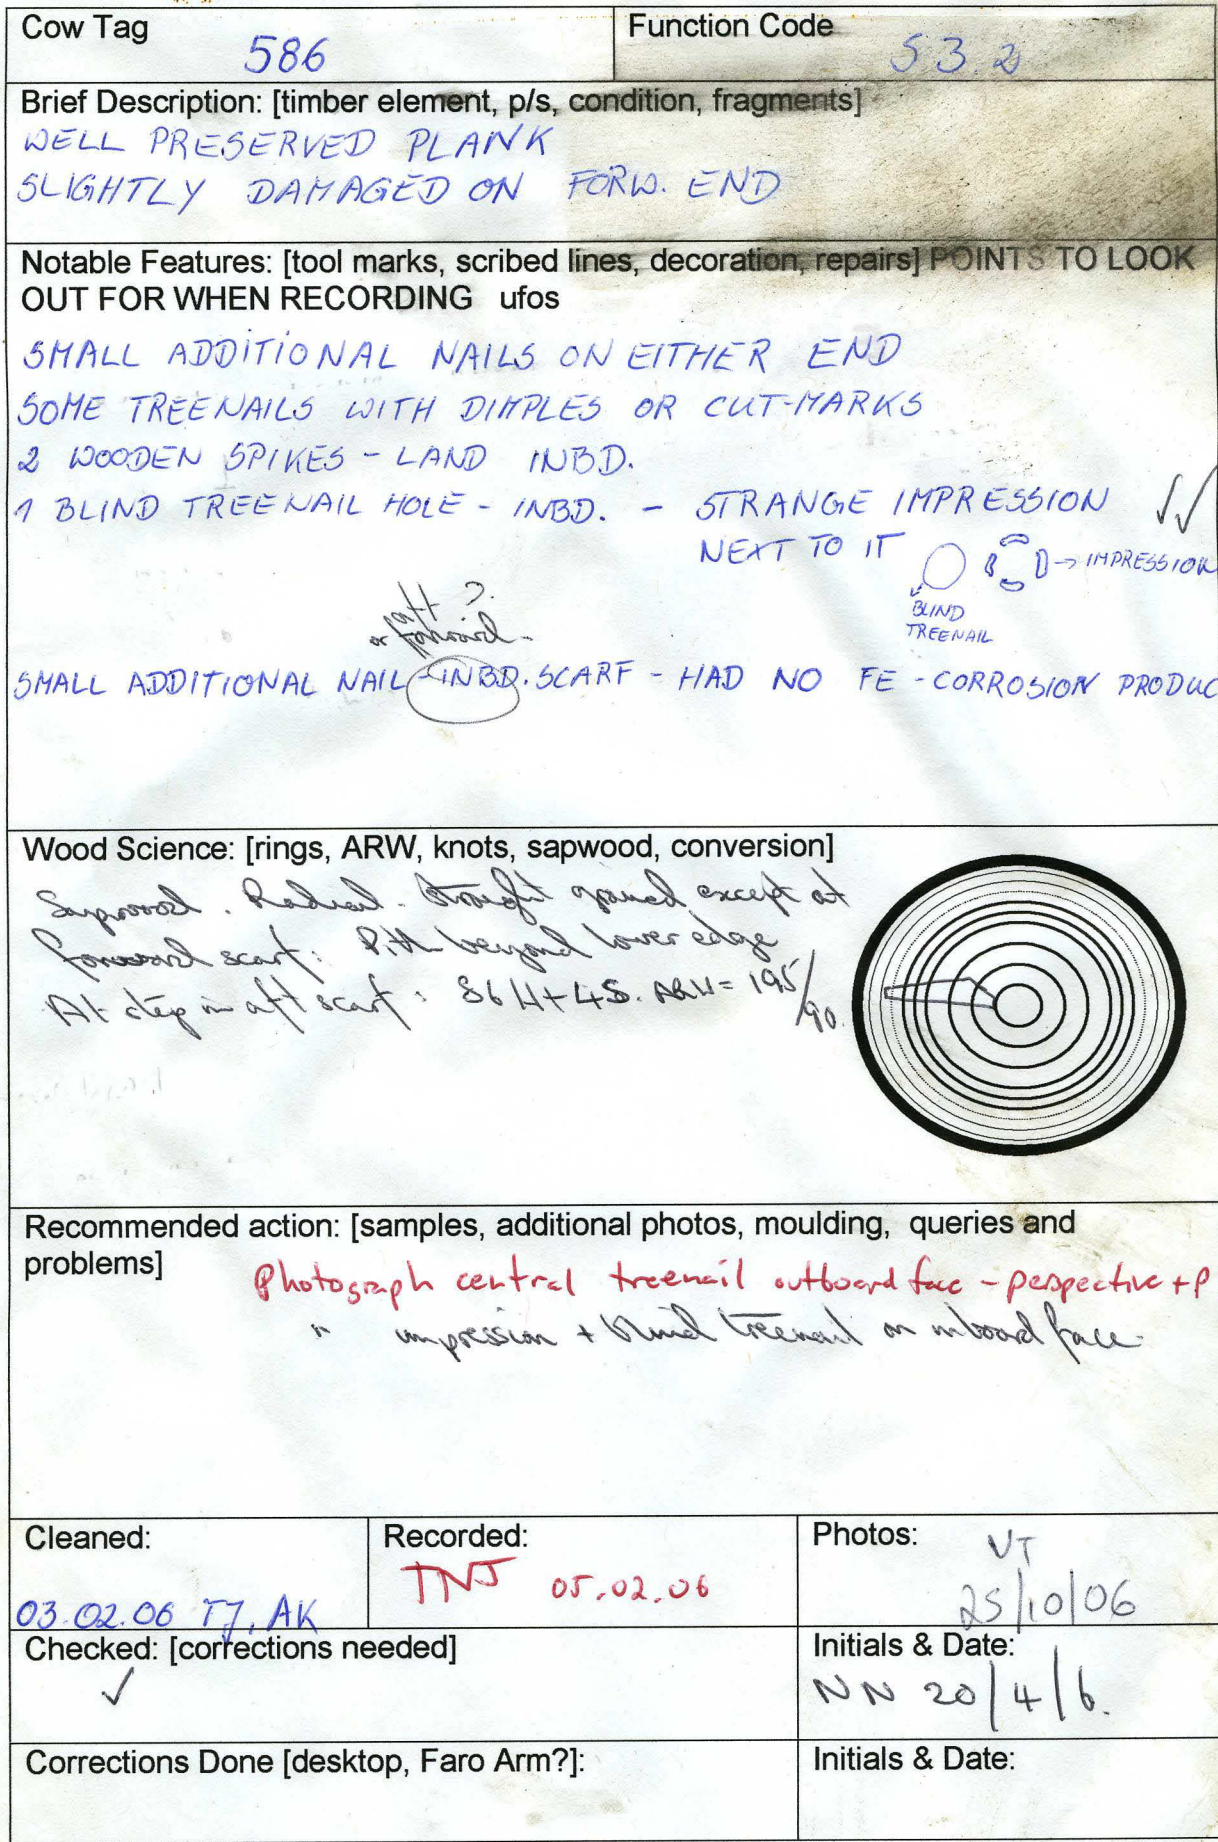 Cow Tag
586
Function Code
S 3.2
Brief Description: [timber element, p/s, condition, fragments]
WELL PRESERVED PLANK
SLIGHTLY DAMAGED ON FORW. END
Notable Features: [tool marks, scribed lines, decoration, repairs] POINTS TO LOOK
OUT FOR WHEN RECORDING ufos
SMALL ADDITIONAL NAILS ON EITHER END
SOME TREENAILS WITH DIMPLES OR CUT-MARKS
2 WOODEN SPIKES - LAND INBD.
1 BLIND TREENAIL HOLE - INBD. - STRANGE IMPRESSION
NEXT TO IT
→ IMPRESSION
BLIND
TREENAIL
aft ?
or forward.
SMALL ADDITIONAL NAIL - INBD. SCARF - HAD NO FE - CORROSION PRODUC
Wood Science: [rings, ARW, knots, sapwood, conversion]
Sapwood. Radial. Straight grained except at
forward scarf. Pith beyond lower edge
At step in aft scarf: 86 H + 4S. ARW = 195/90.
Recommended action: [samples, additional photos, moulding, queries and
problems]
Photograph central treenail outboard face - perspective + P
" impression + blind treenail on inboard face
Cleaned:
03.02.06 TJ, AK
Recorded:
TNJ 05.02.06
Photos:
VT
25/10/06
Checked: [corrections needed]
✓
Initials & Date:
NN 20/4/6.
Corrections Done [desktop, Faro Arm?]:
Initials & Date: